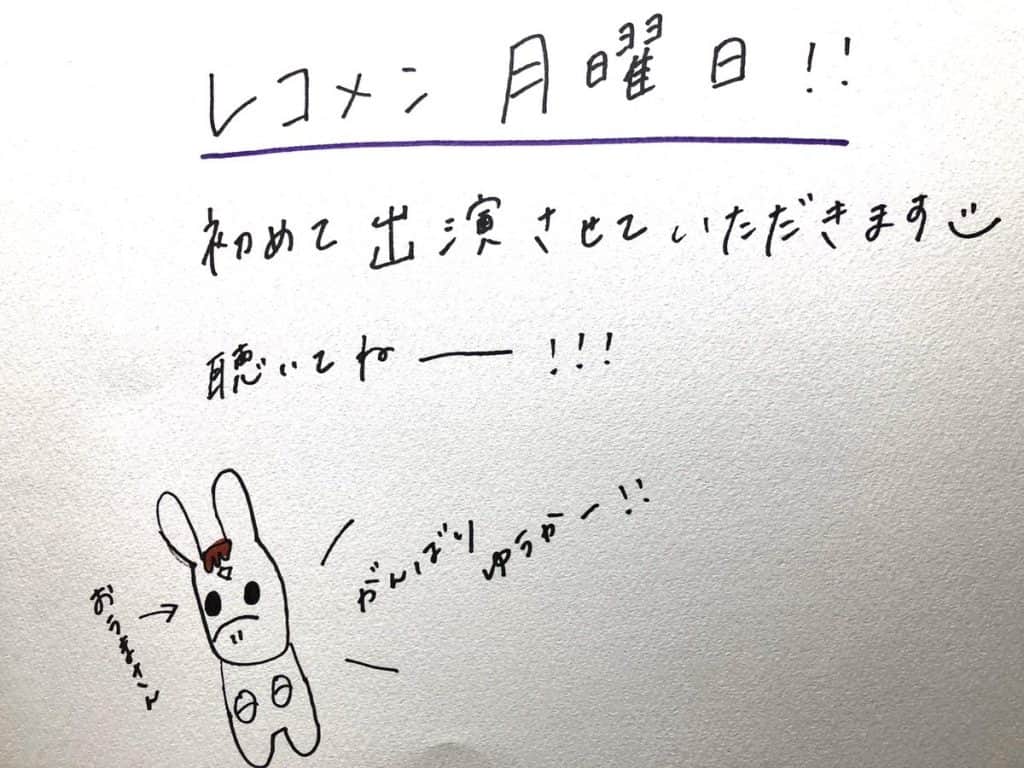 レコメン 月曜日!!
初めて出演させていただきます
聴いてねー!!!
がんばり
ゆうかー!!
おうまさん